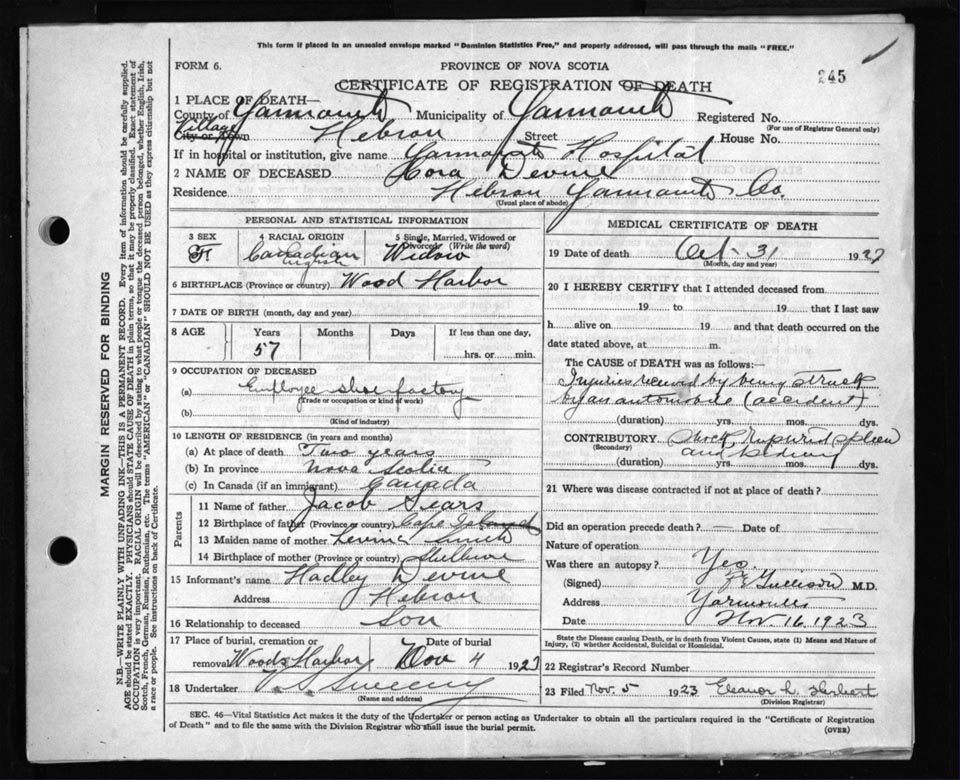 This form if placed in an unsealed envelope marked "Dominion Statistics Free," and properly addressed, will pass through the mails "FREE."
FORM 6.
PROVINCE OF NOVA SCOTIA
245
CERTIFICATE OF REGISTRATION OF DEATH
1 PLACE OF DEATH—
County of Yarmouth Municipality of Yarmouth Registered No.
(For use of Registrar General only)
Village
City or Town Hebron Street House No.
If in hospital or institution, give name Yarmouth Hospital
2 NAME OF DECEASED Devine
Residence Hebron Yarmouth Co.
(Usual place of abode)
PERSONAL AND STATISTICAL INFORMATION
3 SEX
F
4 RACIAL ORIGIN
Canadian
English
5 Single, Married, Widowed or Divorced (Write the word)
Widow
6 BIRTHPLACE (Province or country) Wood Harbor
7 DATE OF BIRTH (month, day and year)
8 AGE Years Months Days If less than one day,
57 hrs. or min.
9 OCCUPATION OF DECEASED
(a) Employee shoe factory
(Trade or occupation or kind of work)
(b)
(Kind of industry)
10 LENGTH OF RESIDENCE (in years and months)
(a) At place of death Two years
(b) In province Nova Scotia
(c) In Canada (if an immigrant) Canada
Parents
11 Name of father Jacob Sears
12 Birthplace of father (Province or country) Cape Island
13 Maiden name of mother Smith
14 Birthplace of mother (Province or country) Shelburne
15 Informant's name Hadley Devine
Address Hebron
16 Relationship to deceased Son
17 Place of burial, cremation or removal Woods Harbor
Date of burial
Nov 4 1923
18 Undertaker Sweeny
(Name and address)
MEDICAL CERTIFICATE OF DEATH
19 Date of death Oct 31 1923
(Month, day and year)
20 I HEREBY CERTIFY that I attended deceased from
19 to 19 that I last saw
h alive on 19 and that death occurred on the
date stated above, at m.
The CAUSE OF DEATH was as follows:—
Injuries received by being struck
by an automobile (accident)
(duration) yrs. mos. dys.
CONTRIBUTORY Shock, Ruptured spleen
(Secondary) and kidney
(duration) yrs. mos. dys.
21 Where was disease contracted if not at place of death?
Did an operation precede death? — Date of
Nature of operation
Was there an autopsy? Yes.
(Signed) M.D.
Address Yarmouth
Date Nov. 16. 1923
State the Disease causing Death, or in death from Violent Causes, state (1) Means and Nature of Injury, (2) whether Accidental, Suicidal or Homicidal.
22 Registrar's Record Number
23 Filed Nov. 5 1923 Eleanor L. Herbert
(Division Registrar)
SEC. 46—Vital Statistics Act makes it the duty of the Undertaker or person acting as Undertaker to obtain all the particulars required in the "Certificate of Registration
of Death" and to file the same with the Division Registrar who shall issue the burial permit.
(OVER)
MARGIN RESERVED FOR BINDING
N.B.—WRITE PLAINLY WITH UNFADING INK—THIS IS A PERMANENT RECORD. Every item of information should be carefully supplied.
AGE should be stated EXACTLY. PHYSICIANS should STATE CAUSE OF DEATH in plain terms, so that it may be properly classified. Exact statement of
OCCUPATION is very important. RACIAL ORIGIN will be described by stating to what people or tongue the deceased person belonged, whether English, Irish,
Scotch, French, German, Russian, Ruthenian, etc. The terms "AMERICAN" or "CANADIAN" SHOULD NOT BE USED as they express citizenship but not
a race or people. See instructions on back of Certificate.